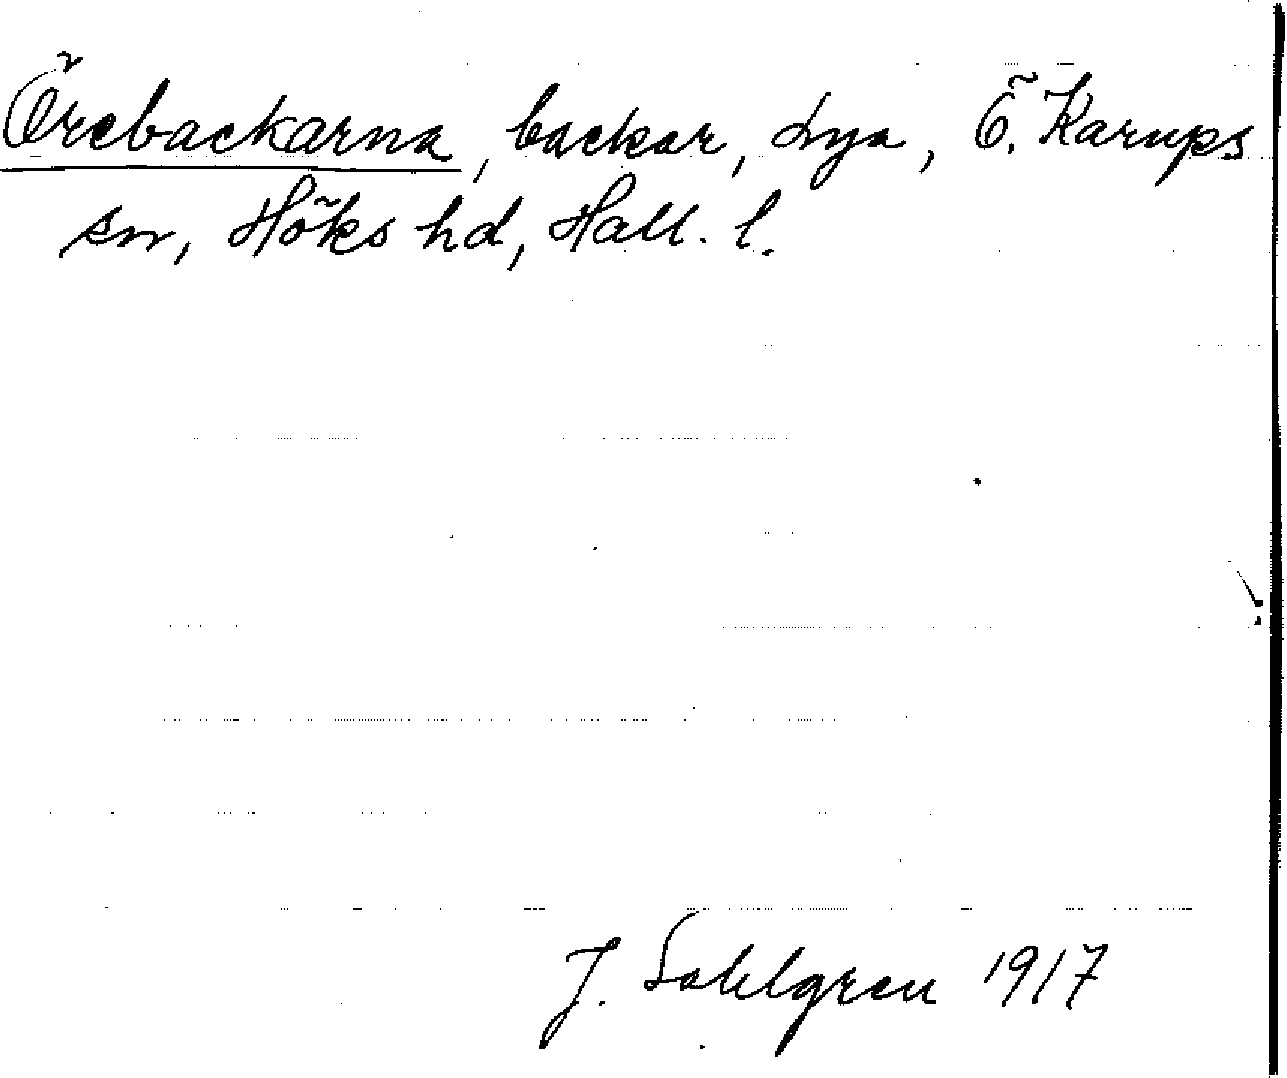 Örebackarna, backar, Lya, Ö. Karups
sn, Höks hd, Hall. l.
J. Sahlgren 1917